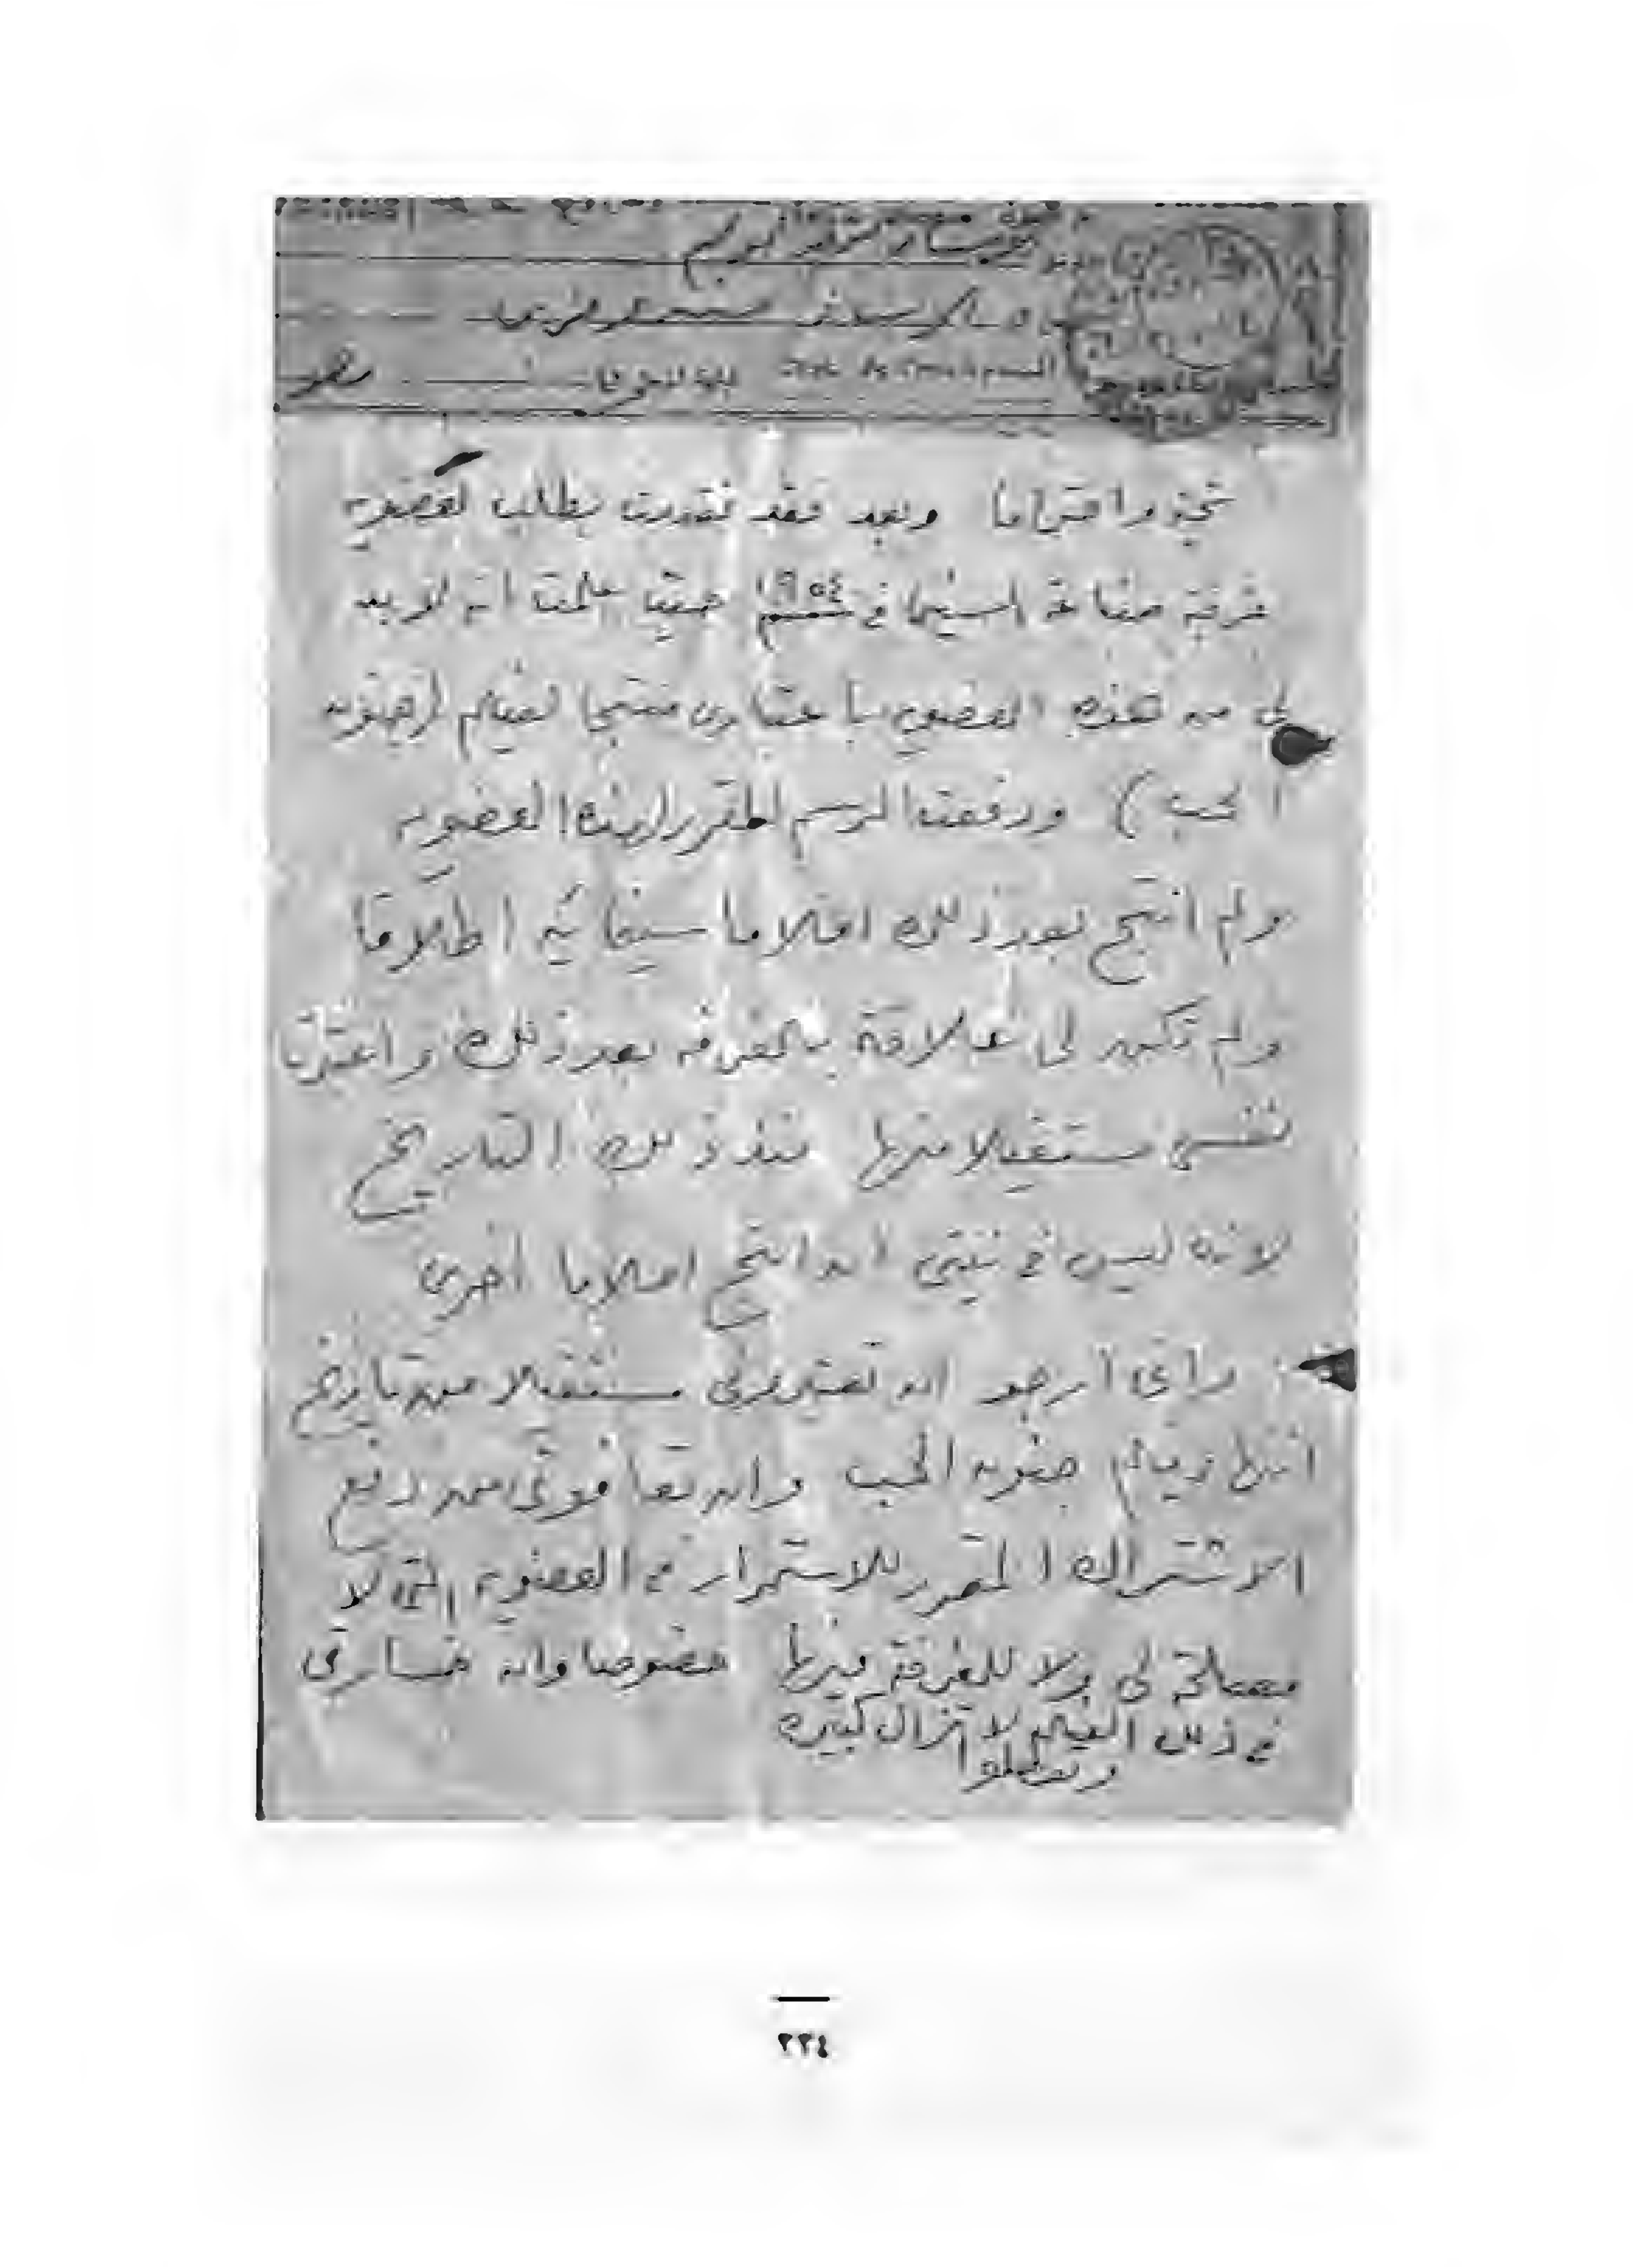 تحية واحتراما وبعد فقد تقدمت بطلب لعضوية
غرفة صناعة السينما في سنة ١٩٥٤ حينما علمت أنه لا بد
لى من هذه العضوية باعتبارى منتجا لفيلم (جنون
الحب) ودفعت الرسم المقرر لهذه العضوية
ولم انتج بعد ذلك افلاما سينمائية اطلاقا
ولم تكن لى علاقة بالغرفة بعد ذلك واعتبرت
نفسى مستقيلا منها منذ ذلك التاريخ
لانه ليس في نيتى ان انتج افلاما أخرى
وانى أرجو ان تعتبرونى مستقيلا من تاريخ
انتها فيلم جنون الحب وان تعافونى من دفع
الاشتراك المقرر للاستمرار في العضوية التى لا
مصلحة لى ولا للغرفة فيها خصوصا وان خسارتى
في ذلك الفيلم لا تزال كبيرة
وتفضلوا
٢٢٤